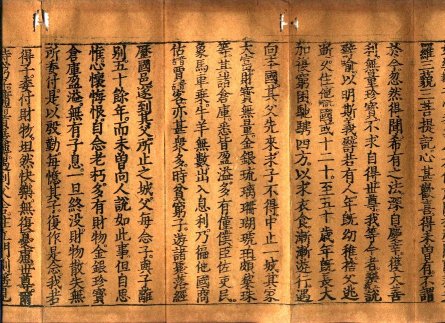 羅三藐三菩提記心甚歡喜得未曾有不謂
於今忽然得聞希有之法深自慶幸獲大善
利無量珍寶不求自得世尊我等今者樂說
譬喻以明斯義譬若有人年既幼稚捨父逃
逝久住他國或十二十至五十歲年既長大
加復窮困馳騁四方以求衣食漸漸遊行遇
向本國其父先來求子不得中止一城其家
大富財寶無量金銀琉璃珊瑚琥珀頗梨珠
等其諸倉庫悉皆盈溢多有僮僕臣佐吏民
象馬車乘牛羊無數出入息利乃徧他國商
估賈客亦甚眾多時貧窮子遊諸聚落經
歷國邑遂到其父所止之城父每念子與子離
別五十餘年而未曾向人說如此事但自思
惟心懷悔恨自念老朽多有財物金銀珍寶
倉庫盈溢無有子息一旦終沒財物散失無
所委付是以慇懃每憶其子復作是念我若
得子委付財物坦然快樂無復憂慮世尊爾